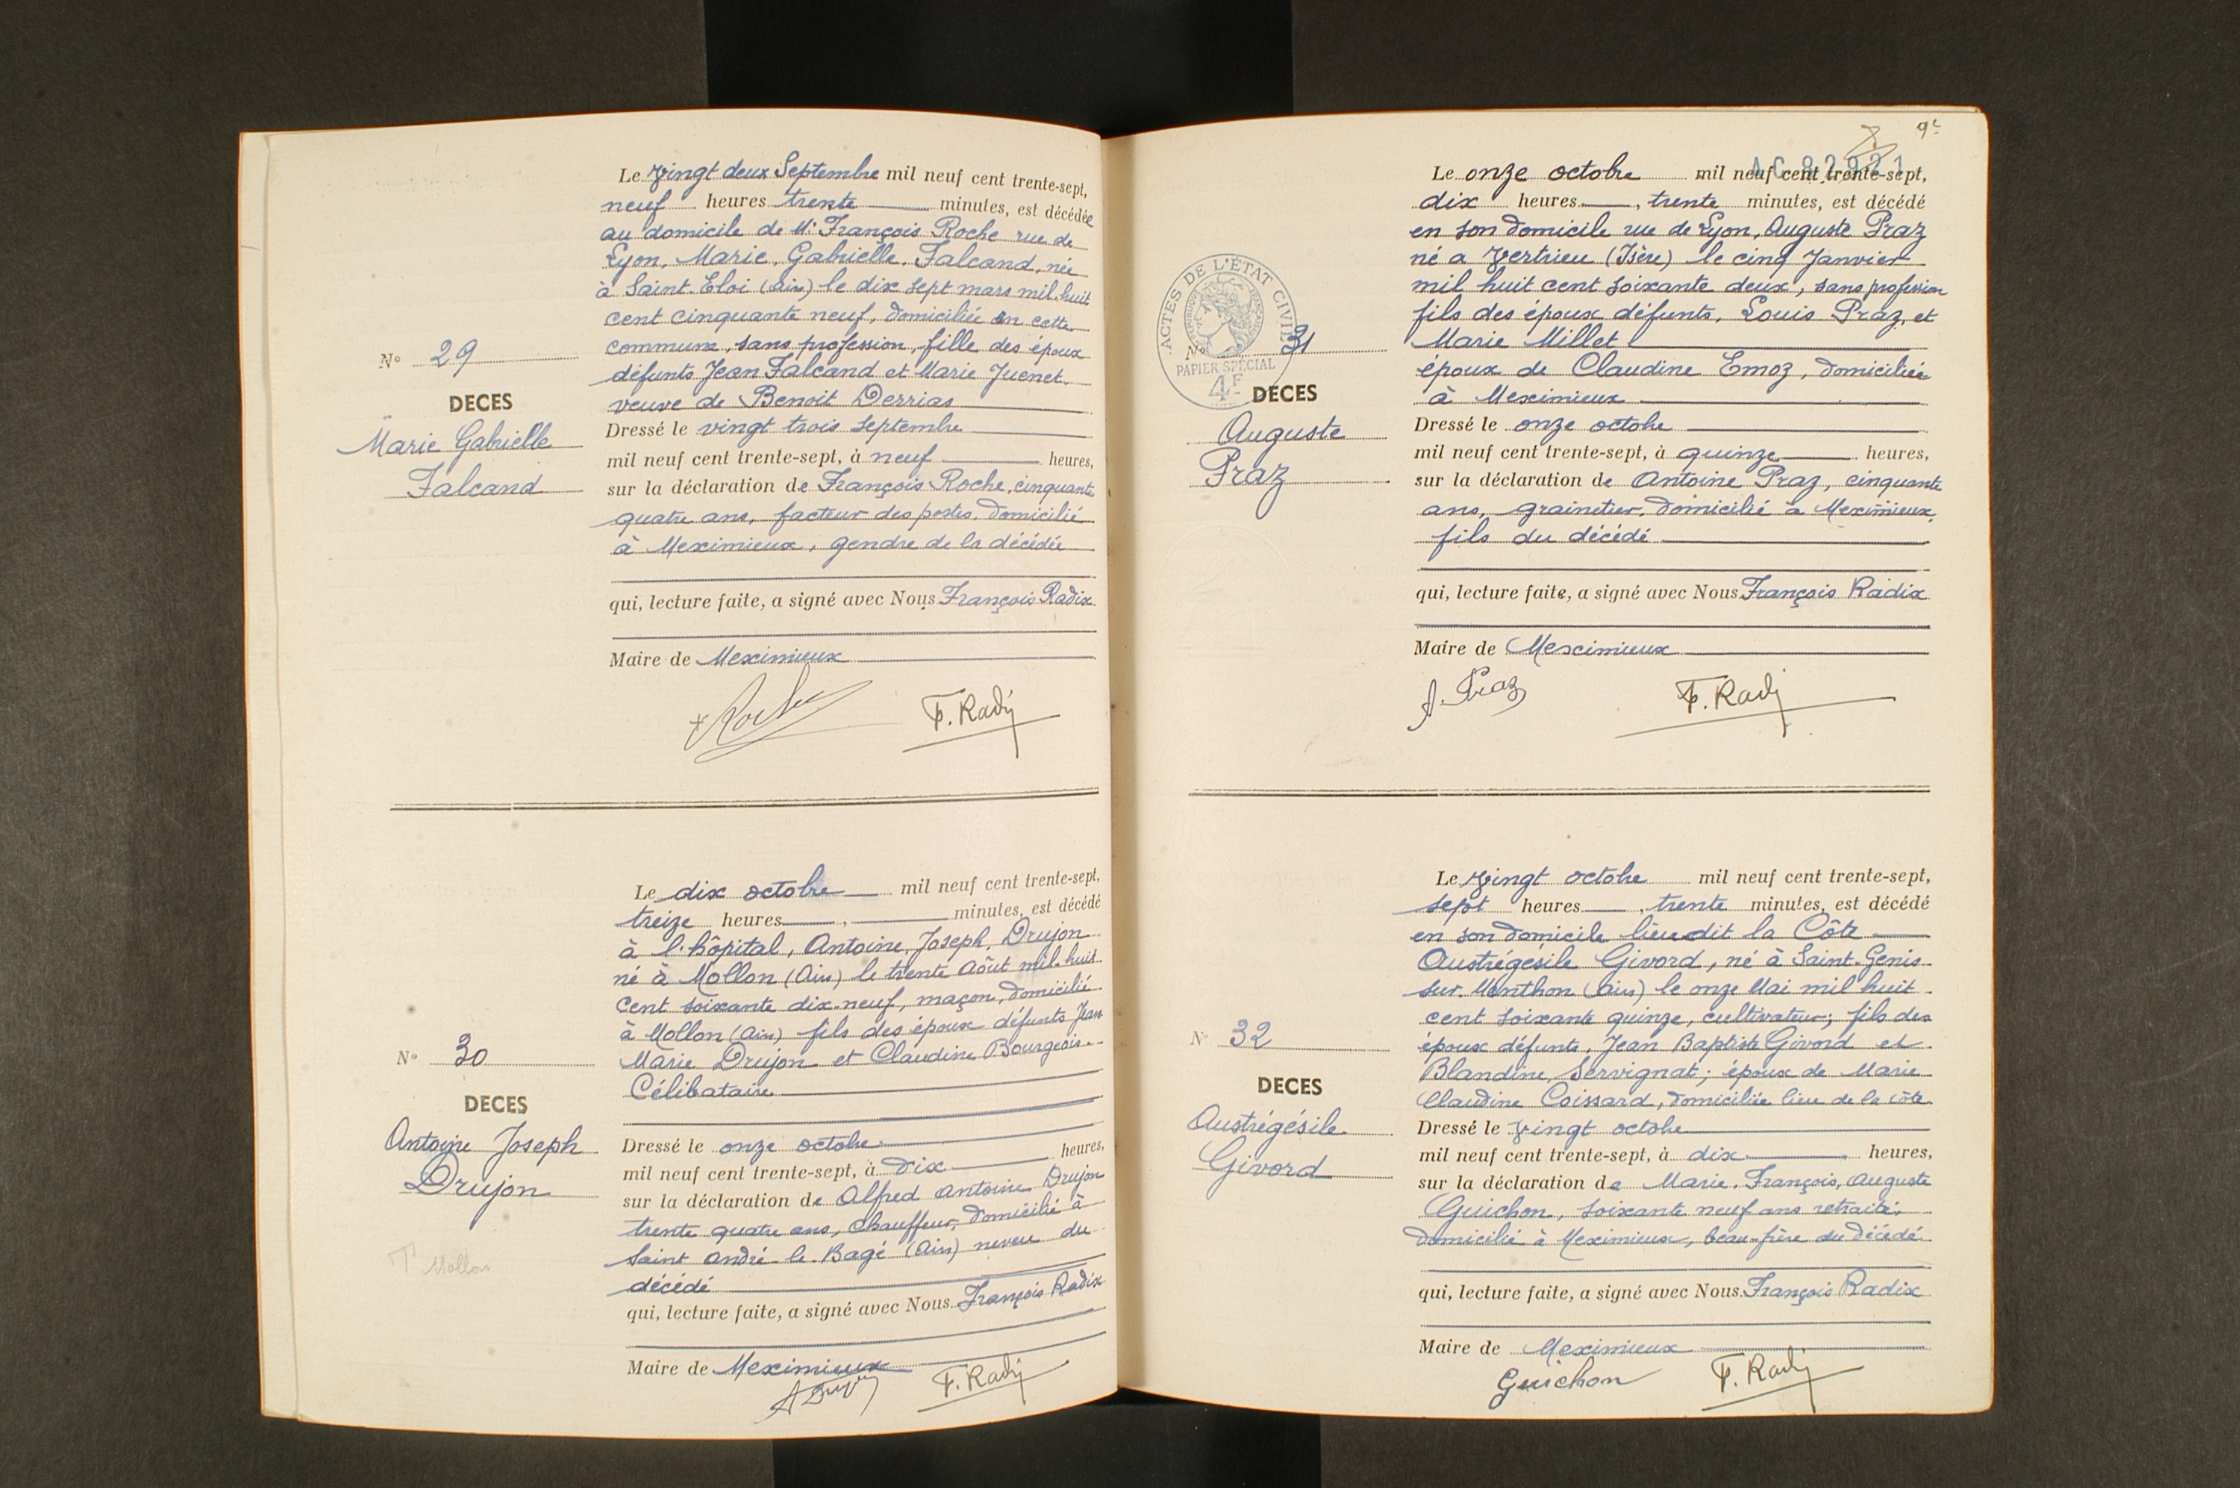 Le vingt deux Septembre mil neuf cent trente-sept,
neuf heures trente minutes, est décédée
au domicile de Mr François Roche rue de
Lyon, Marie, Gabrielle, Falcand, née
à Saint-Eloi (Ain) le dix sept mars mil huit
cent cinquante neuf, domiciliée en cette
commune, sans profession, fille des époux
défunts Jean Falcand et Marie Juenet,
veuve de Benoit Derrias
Dressé le vingt trois septembre
mil neuf cent trente-sept, à neuf heures,
sur la déclaration de François Roche, cinquante
quatre ans, facteur des postes, domicilié
à Meximieux, gendre de la décédée
qui, lecture faite, a signé avec Nous François Radix
Maire de Meximieux
Roche F. Radix
N° 29
DECES
Marie Gabrielle
Falcand
Le dix octobre mil neuf cent trente-sept,
treize heures, minutes, est décédé
à l'hôpital, Antoine, Joseph, Drujon
né à Mollon (Ain) le trente Août mil huit
cent soixante dix-neuf, maçon, domicilié
à Mollon (Ain) fils des époux défunts Jean
Marie Drujon et Claudine Bourgeois
Célibataire
Dressé le onze octobre
mil neuf cent trente-sept, à dix heures,
sur la déclaration de Alfred Antoine Drujon
trente quatre ans, chauffeur, domicilié à
Saint André-le-Bagé (Ain) neveu du
décédé
qui, lecture faite, a signé avec Nous François Radix
Maire de Meximieux
A Drujon F. Radix
N° 30
DECES
Antoine Joseph
Drujon
T Mollon
9e
Le onze octobre mil neuf cent trente-sept,
dix heures, trente minutes, est décédé
en son domicile rue de Lyon, Auguste Praz
né a Vertrieu (Isère) le cinq Janvier
mil huit cent soixante deux, sans profession
fils des époux défunts, Louis Praz, et
Marie Millet
époux de Claudine Emoz, domiciliée
à Meximieux
Dressé le onze octobre
mil neuf cent trente-sept, à quinze heures,
sur la déclaration de Antoine Praz, cinquante
ans, grainetier, domicilié à Meximieux,
fils du décédé
qui, lecture faite, a signé avec Nous François Radix
Maire de Meximieux
A. Praz F. Radix
ACTES DE L'ÉTAT CIVIL
PAPIER SPÉCIAL
4F
N° 31
DECES
Auguste
Praz
Le vingt octobre mil neuf cent trente-sept,
sept heures, trente minutes, est décédé
en son domicile lieu dit la Côte
Austrégésile Givord, né à Saint-Genis
sur Menthon (Ain) le onze Mai mil huit
cent soixante quinze, cultivateur; fils des
époux défunts, Jean Baptiste Givord et
Blandine, Servignat; époux de Marie
Claudine Coissard, domiciliée lieu de la côte
Dressé le vingt octobre
mil neuf cent trente-sept, à dix heures,
sur la déclaration de Marie, François, Auguste
Guichon, soixante neuf ans retraité,
domicilié à Meximieux, beau-frère du décédé
qui, lecture faite, a signé avec Nous François Radix
Maire de Meximieux
Guichon F. Radix
N° 32
DECES
Austrégésile
Givord